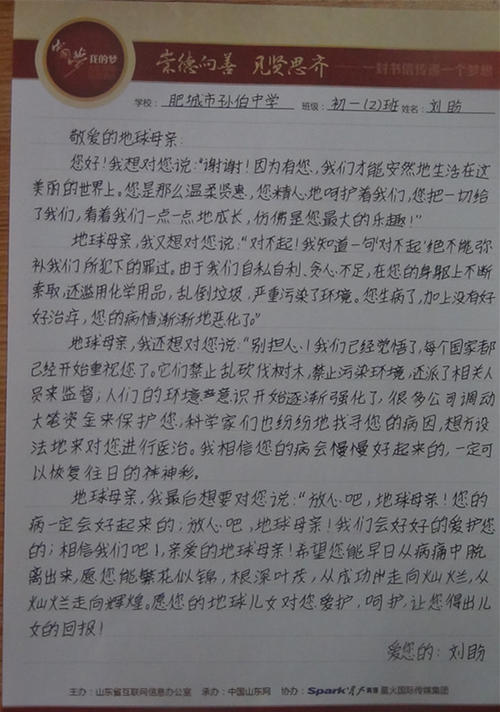 中国梦 我的梦
崇德向善 见贤思齐 一封书信传递一个梦想
学校: 肥城市孙伯中学 班级: 初一(2)班 姓名: 刘盼
敬爱的地球母亲:
您好!我想对您说:“谢谢!因为有您,我们才能安然地生活在这
美丽的世界上。您是那么温柔贤惠,您精心地呵护着我们,您把一切给
了我们,看着我们一点一点地成长,仿佛是您最大的乐趣!”
地球母亲,我又想对您说:“对不起!我知道一句‘对不起’绝不能弥
补我们所犯下的罪过。由于我们自私自利、贪心不足,在您的身躯上不断
索取,还滥用化学用品,乱倒垃圾,严重污染了环境。您生病了,加上没有好
好治疗,您的病情渐渐地恶化了。”
地球母亲,我还想对您说:“别担心!我们已经觉悟了,每个国家都
已经开始重视您了。它们禁止乱砍伐树木,禁止污染环境,还派了相关人
员来监督;人们的环境意识开始逐渐强化了,很多公司调动
大笔资金来保护您,科学家们也纷纷地找寻您的病因,想方设
法地来对您进行医治。我相信您的病会慢慢好起来的,一定可
以恢复往日的神彩。
地球母亲,我最后想要对您说:“放心吧,地球母亲!您的
病一定会好起来的;放心吧,地球母亲!我们会好好的爱护您
的;相信我们吧!亲爱的地球母亲!希望您能早日从病痛中脱
离出来,愿您能繁花似锦,根深叶茂,从成功走向灿烂,从
灿烂走向辉煌。愿您的地球儿女对您爱护,呵护,让您得出儿
女的回报!
爱您的:刘盼
主办:山东省互联网信息办公室 承办:中国山东网 协办:Spark 星火国际传媒集团